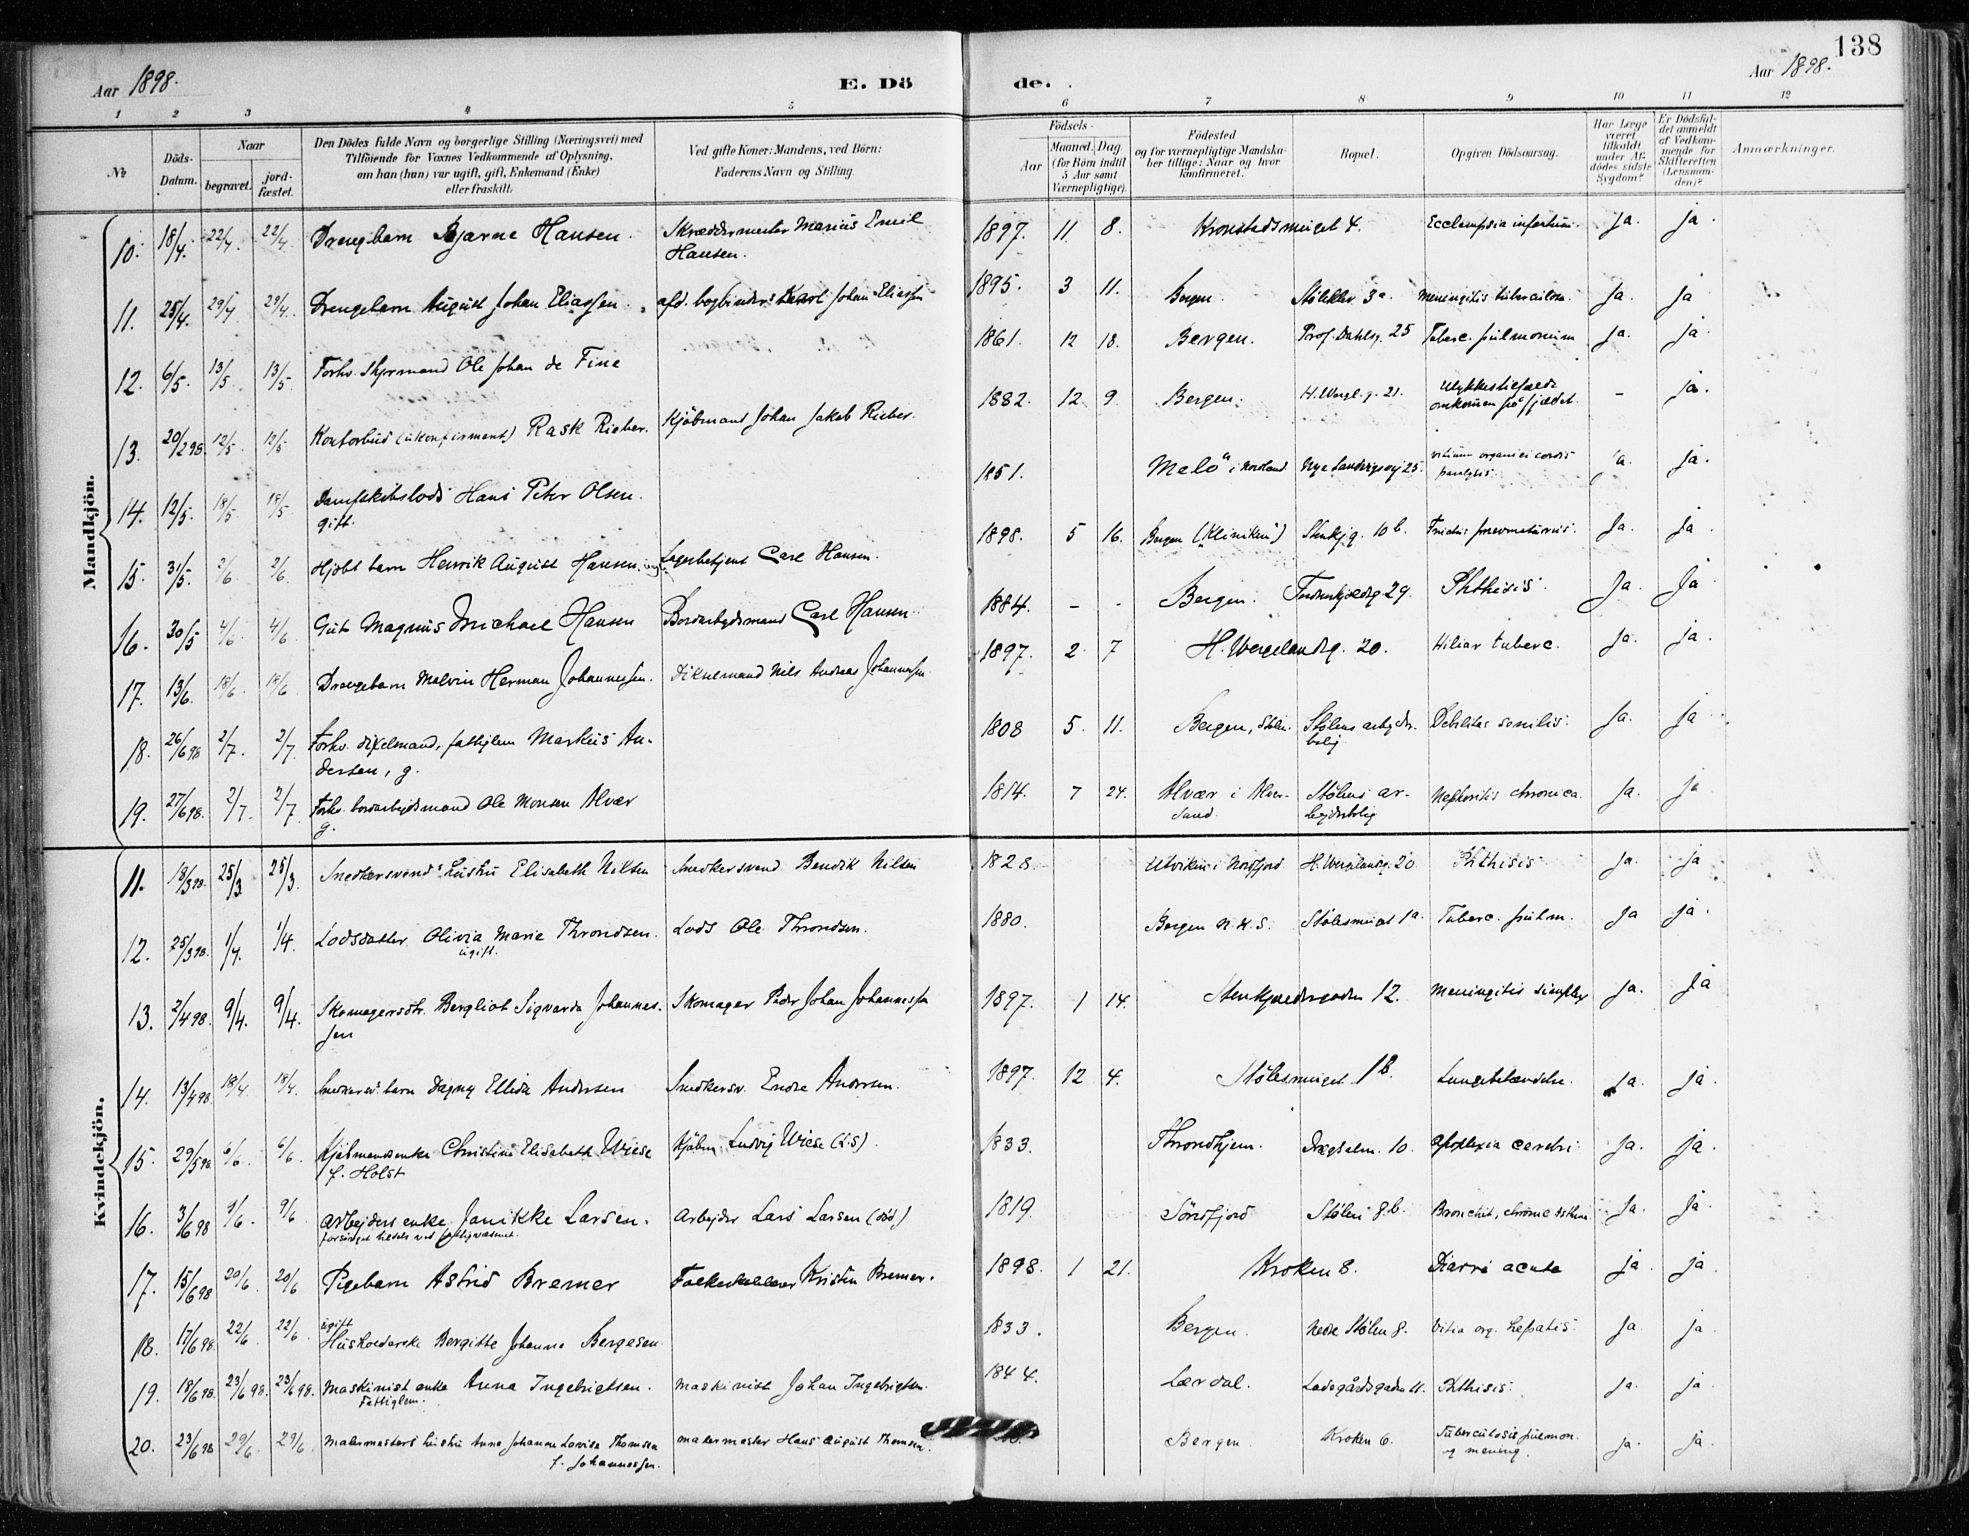 138
Aar 1898.
E. Dö
de.
Aar 1898.
1 2 3 4 5 6 7 8 9 10 11 12
No
Döds-Datum.
Naar
begravet.
jord-fæstet.
Den Dödes fulde Navn og borgerlige Stilling (Næringsvei) med
Tilföiende for Voxnes Vedkommende af Oplysning,
om han (hun) var ugift, gift, Enkemand (Enke)
eller fraskilt.
Ved gifte Koner: Mandens, ved Börn:
Faderens Navn og Stilling.
Födsels-
Aar
Maaned. Dag.
(for Börn indtil
5 Aar samt
Værnepligtige).
Födested
og for værnepligtige Mandska-
ber tillige: Naar og hvor
konfirmeret.
Bopæl.
Opgiven Dödsaarsag.
Har Læge
været
tilkaldt
under Af-
dödes sidste
Sygdom?
Er Dödsfal-
det anmeldt
af Vedkom-
mende for
Skifteretten
(Lensman-
den)?
Anmærkninger.
Mandkjön.
10. 18/4. 22/4. 22/4. Drengebarn Bjarne Hansen. Skræddermester Marius Emil Hansen. 1897. 11 8. Kronstadsmuget 4. Ecclampsia infantum. Ja. ja.
11. 25/4. 29/4 29/4. Drengebarn August Johan Eliassen. afd. bogbinder Johan Eliassen 1895. 3 11. Bergen. Stølekl. 3a. Meningitis tuberculosa. Ja. ja
12. 6/5. 13/5 13/5. Forhv. Styrmand Ole Johan de Fine 1861. 12 18. Bergen. Prof. Dahlsg. 25 Tuberc. pulmonum Ja. ja
13. 20/2 98. 12/5. 12/5 Kontorbud (ukonfirmeret) Rask Rieber. Kjøbmand Johan Jakob Rieber. 1882. 12 9. Bergen. H. Wergl. g. 21. Ulykkestilfælde omkommen på fjeldet. - ja.
14. 12/5. 18/5 18/5. Dampskibslods Hans Peter Olsen. gift. 1851. Melö i Nordland Nye Sandvigsvej 25. vitium organici cordis paralysis. ja.
15. 31/5. 2/6 2/6. Hjdbt barn Henrik August Hansen. Lagerbetjent Carl Hansen. 1898. 5 16. Bergen ("Kliniken") Stenkjg. 10 b. Foetus praematurus. Ja. ja
16. 30/5 4/6. 4/6 Gut Magnus Michael Hansen Bordarbejdsmand Carl Hansen 1884. - - Bergen. 29. Phthisis. Ja. Ja
17. 13/6. 18/6. 18/6 Drengebarn Malvin Herman Johannessen. Dikselmand Nils Andreas Johannessen 1897. 2 7 H. Wergelandsg. 20. Miliar tuberc. Ja. ja.
18. 26/6 98 2/7. 2/7 Forhv. dixelmand, fattiglem Markus Andersen, g. 1808 5. 11. Bergen, Stølen. Stølens arbejderbolig Debilitas senilis. Ja. ja
19. 27/6 98. 2/7. 2/7. Forhv. bordarbejdsmand Ole Monsen Alvær g. 1814. 7 24. Alvær i Alversund. Stølens arbejderbolig Nephritis chronica. Ja. ja
Kvindekjön.
11. 18/3 98. 25/3 25/3. Snedkersvends hustru Elisabeth Nilsen Snedkersvend Bendik Nilsen 1828. Utviken i Nordfjord H. Wergelandsg. 20 Phthisis Ja. ja
12. 25/3 98. 1/4. 1/4. Lodsdatter Olivia Marie Throndsen. ugift. Lods Ole Throndsen. 1880. Bergen N. K. S. Stølesmuget 1a. Tuberc. pulm. Ja ja.
13. 2/4 98. 9/4. 9/4. Skomagersdtr. Bergliot Sigvarda Johannessen Skomager Peder Johan Johannessen 1897. 1 14. Stenkjældergaden 12. Meningitis simplex Ja. Ja
14. 13/4 98 18/4 18/4. Snedkersv. barn Dagny Ellida Andersen Snedkersv. Endre Andersen. 1897. 12 4. Stølesmuget 18. Lungebetændelse. Ja. ja.
15. 29/5 98 6/6. 6/6. Kjøbmandsenke Christine Elisabeth Wiese f. Holst Kjøbm. Ludvig Wiese (d.s). 1833. Throndhjem. Drægsalm. 10. Apoplexia cerebri. Ja. ja.
16. 3/6 98 9/6. 9/6 Arbejders enke Janikke Larsen. forsørget tildels ved fattigvæsenet. Arbejder Lars Larsen (död) 1819. Söndfjord Stølen 8 b. Bronchit, chronic asthma Ja. ja.
17. 15/6 98 20/6 20/6 Pigebarn Astrid Bremer Kristen Bremer. 1898. 1 21. Kroken 8. Diarré acuta ja ja.
18. 17/6 98. 22/6. 22/6. ugift Husholderske Bergitte Johanne Bergesen. 1833. Bergen. Nedre Stølen 8. Vitia org. hepatis. Ja. ja.
19. 18/6 98. 23/6 98. 23/6 98. Maskinist enke Anna Ingebrigtsen. Fattiglem. Maskinist Johan Ingebrigtsen. 1844. Lærdal. Ladegårdsgaden 11. Phthisis. Ja. ja.
20. 23/6 98 29/6 29/6. Malermesters hustru Anna Johanne Lovise Thomsen f. Johannessen. malermester Hans August Thomsen. Bergen. Kroken 6. Tuberculosis pulmon. og mening. Ja. ja.